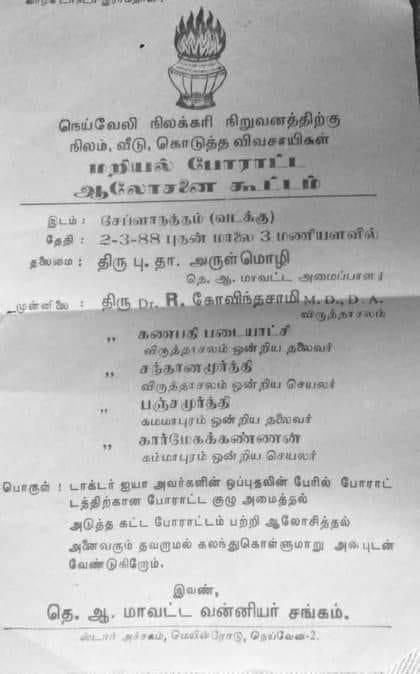 நெய்வேலி நிலக்கரி நிறுவனத்திற்கு
நிலம், வீடு, கொடுத்த விவசாயிகள்
மறியல் போராட்ட
ஆலோசனை கூட்டம்
இடம் : சேப்ளாநத்தம் (வடக்கு)
தேதி : 2-3-88 புதன் மாலை 3 மணியளவில்
தலைமை: திரு பு. தா. அருள்மொழி
தெ. ஆ. மாவட்ட அமைப்பாளர்
முன்னிலை : திரு Dr. R. கோவிந்தசாமி M. D., D. A.
விருத்தாசலம்
,, கணபதி படையாட்சி
விருத்தாசலம் ஒன்றிய தலைவர்
,, சந்தானமூர்த்தி
விருத்தாசலம் ஒன்றிய செயலர்
,, பஞ்சமூர்த்தி
கம்மாபுரம் ஒன்றிய தலைவர்
,, கார்மேகக்கண்ணன்
கம்மாபுரம் ஒன்றிய செயலர்
பொருள் : டாக்டர் ஐயா அவர்களின் ஒப்புதலின் பேரில் போராட்
டத்திற்கான போராட்ட குழு அமைத்தல்
அடுத்த கட்ட போராட்டம் பற்றி ஆலோசித்தல்
அனைவரும் தவறாமல் கலந்துகொள்ளுமாறு அன்புடன்
வேண்டுகிறோம்.
இவண்,
தெ. ஆ. மாவட்ட வன்னியர் சங்கம்.
ஸ்டார் அச்சகம், மெயின்ரோடு, நெய்வேலி-2.